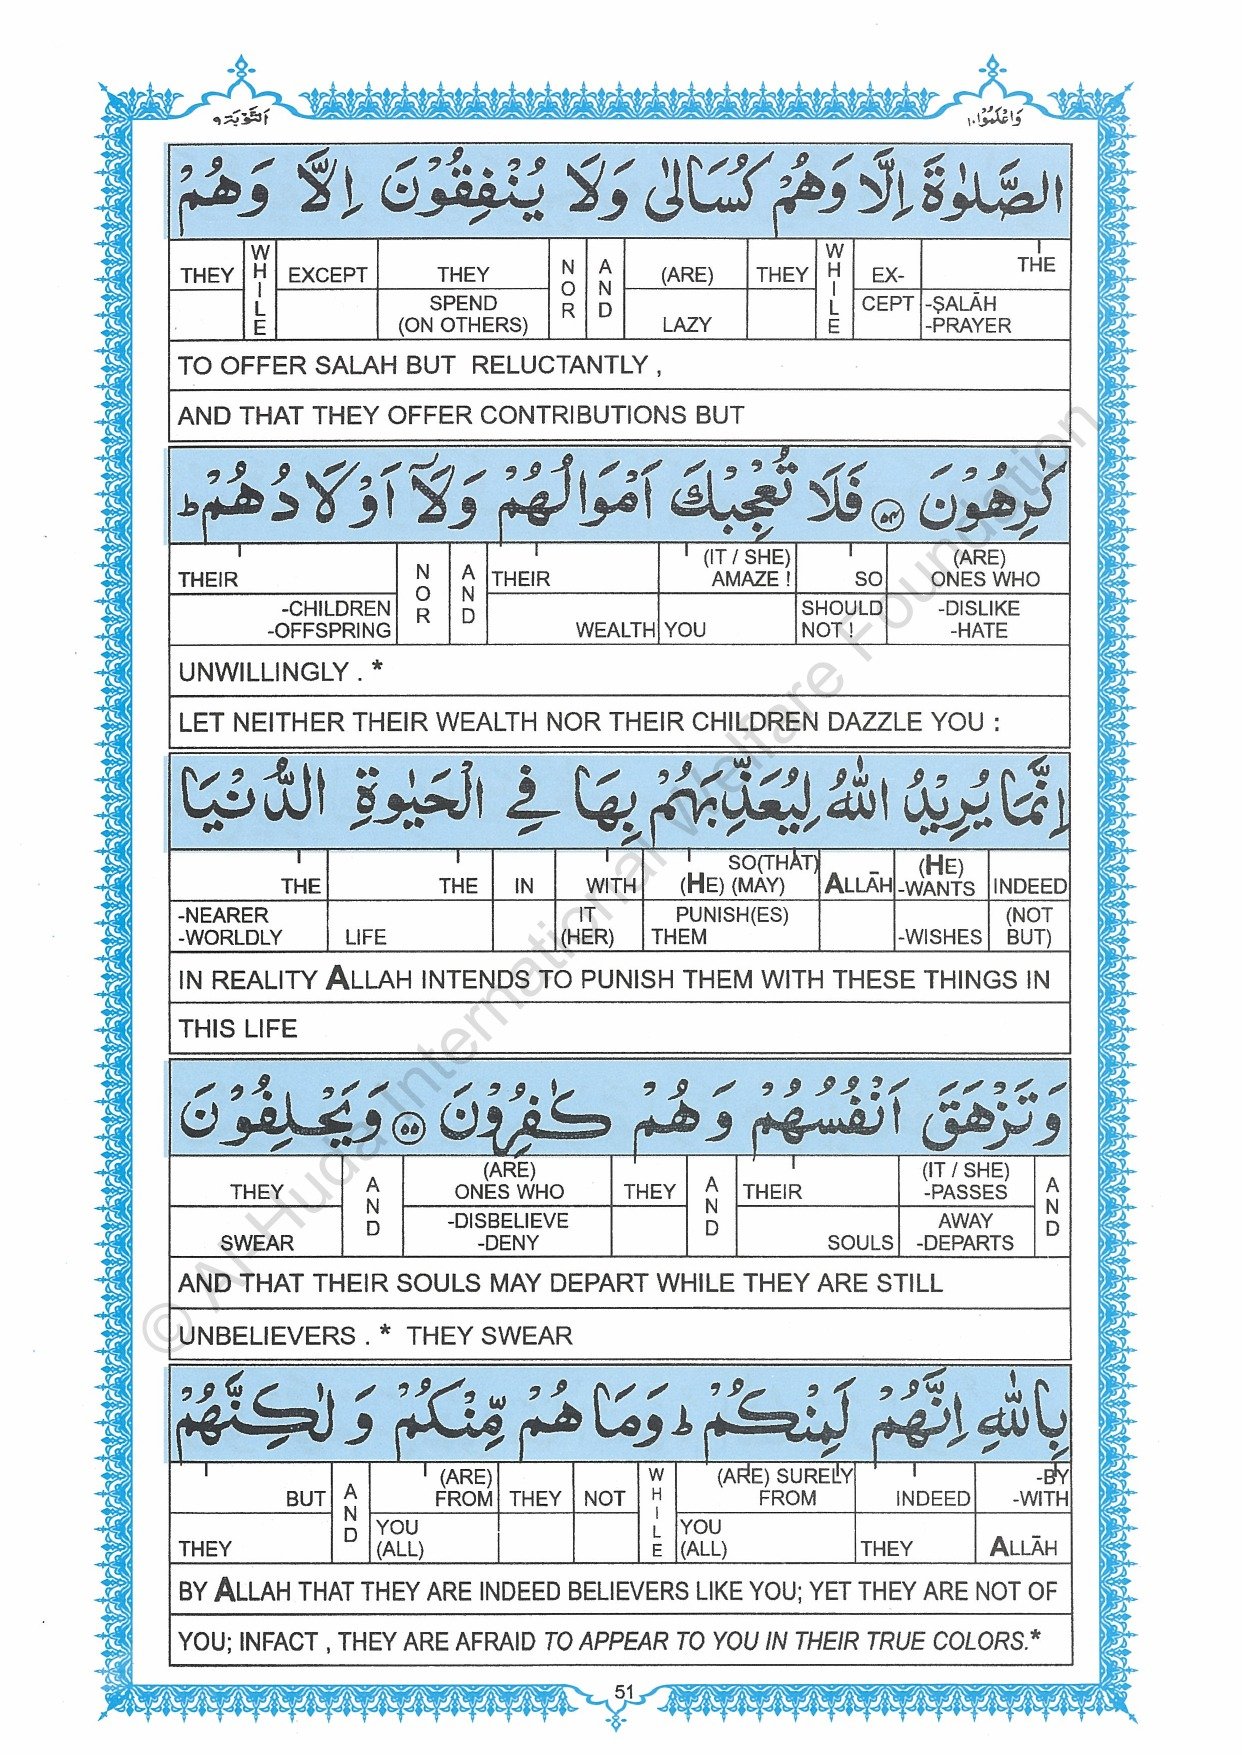 التَّوْبَة ٩ وَاعْلَمُوْا ١٠
الصَّلٰوةَ اِلَّا وَهُمْ كُسَالٰى وَلَا يُنْفِقُوْنَ اِلَّا وَهُمْ
THEY WHILE EXCEPT THEY NOR AND (ARE) THEY WHILE EX- THE
SPEND (ON OTHERS) LAZY CEPT -ṢALĀH -PRAYER
TO OFFER SALAH BUT RELUCTANTLY ,
AND THAT THEY OFFER CONTRIBUTIONS BUT
كٰرِهُوْنَ ٥٤ فَلَا تُعْجِبْكَ اَمْوَالُهُمْ وَلَآ اَوْلَادُهُمْ ط
THEIR NOR AND THEIR (IT / SHE) AMAZE ! SO (ARE) ONES WHO
-CHILDREN -OFFSPRING WEALTH YOU SHOULD NOT ! -DISLIKE -HATE
UNWILLINGLY . *
LET NEITHER THEIR WEALTH NOR THEIR CHILDREN DAZZLE YOU :
اِنَّمَا يُرِيْدُ اللّٰهُ لِيُعَذِّبَهُمْ بِهَا فِي الْحَيٰوةِ الدُّنْيَا
THE THE IN WITH SO(THAT) (HE) (MAY) ALLĀH (HE) -WANTS INDEED
-NEARER -WORLDLY LIFE IT (HER) PUNISH(ES) THEM -WISHES (NOT BUT)
IN REALITY ALLAH INTENDS TO PUNISH THEM WITH THESE THINGS IN
THIS LIFE
وَتَزْهَقَ اَنْفُسُهُمْ وَهُمْ كٰفِرُوْنَ ٥٥ وَيَحْلِفُوْنَ
THEY AND (ARE) ONES WHO THEY AND THEIR (IT / SHE) -PASSES AND
SWEAR -DISBELIEVE -DENY SOULS AWAY -DEPARTS
AND THAT THEIR SOULS MAY DEPART WHILE THEY ARE STILL
UNBELIEVERS . * THEY SWEAR
بِاللّٰهِ اِنَّهُمْ لَمِنْكُمْ ط وَمَا هُمْ مِّنْكُمْ وَلٰكِنَّهُمْ
BUT AND (ARE) FROM THEY NOT WHILE (ARE) SURELY FROM INDEED -BY -WITH
THEY YOU (ALL) YOU (ALL) THEY ALLĀH
BY ALLAH THAT THEY ARE INDEED BELIEVERS LIKE YOU; YET THEY ARE NOT OF
YOU; INFACT , THEY ARE AFRAID TO APPEAR TO YOU IN THEIR TRUE COLORS.*
51
© Al-Huda International Welfare Foundation